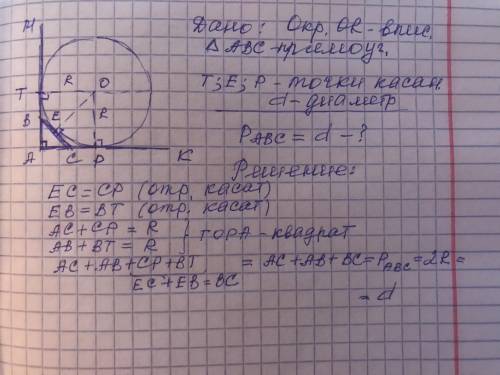 Дано: Окр. OR - впис.
△ ABC - прямоуг.
T; E; P - точки касан.
d - диаметр
P ABC = d - ?
Решение:
M
T
R
O
B
E
R
A
C
P
K
EC = CP (отр. касат)
EB = BT (отр. касат)
AC + CP = R
AB + BT = R
} TOPA - квадрат
AC + AB + CP + BT = AC + AB + BC = P ABC = 2R =
EC + EB = BC
= d